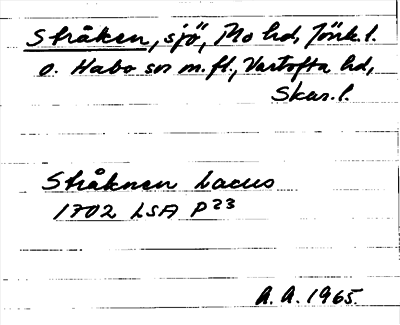 Stråken, sjö, Mo hd, Jönk. l.
o. Habo sn m. fl., Vartofta hd,
Skar. l.
Stråknen Lacus
1702 LSA P23
A. A. 1965.